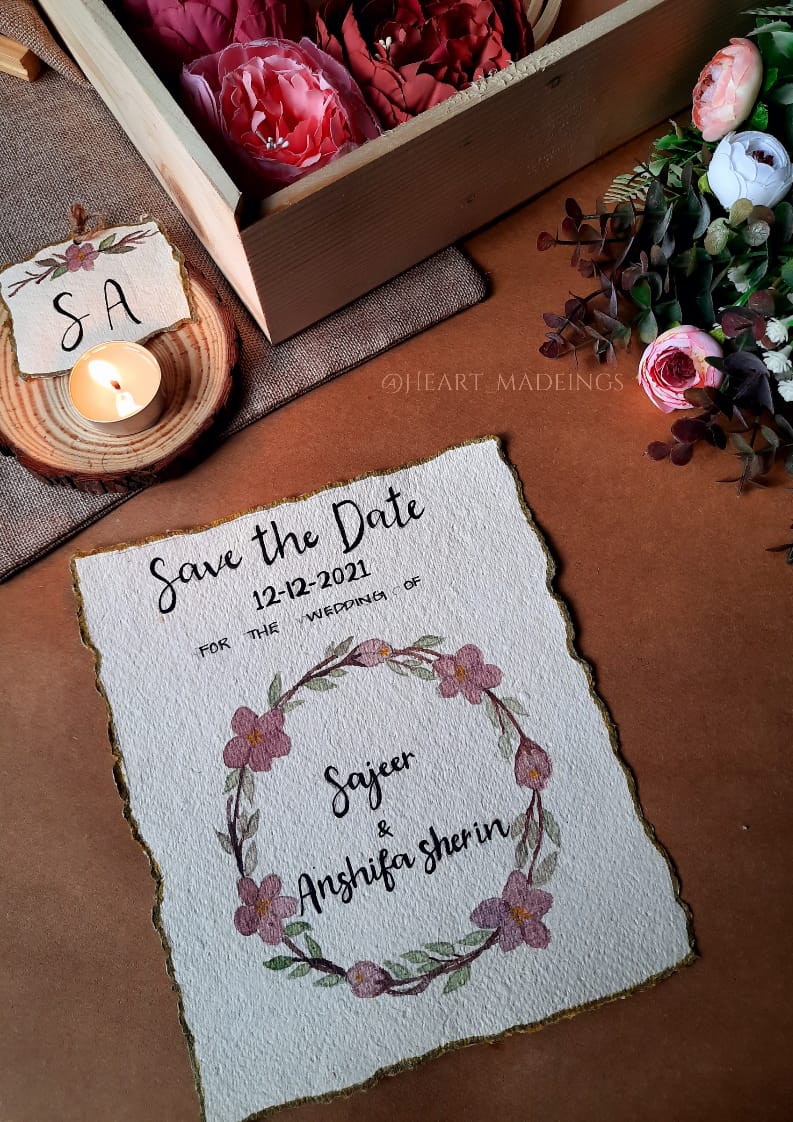 S A
@HEART_MADEINGS
Save the Date
12-12-2021
FOR THE WEDDING OF
Sajeer
&
Anshifa sherin